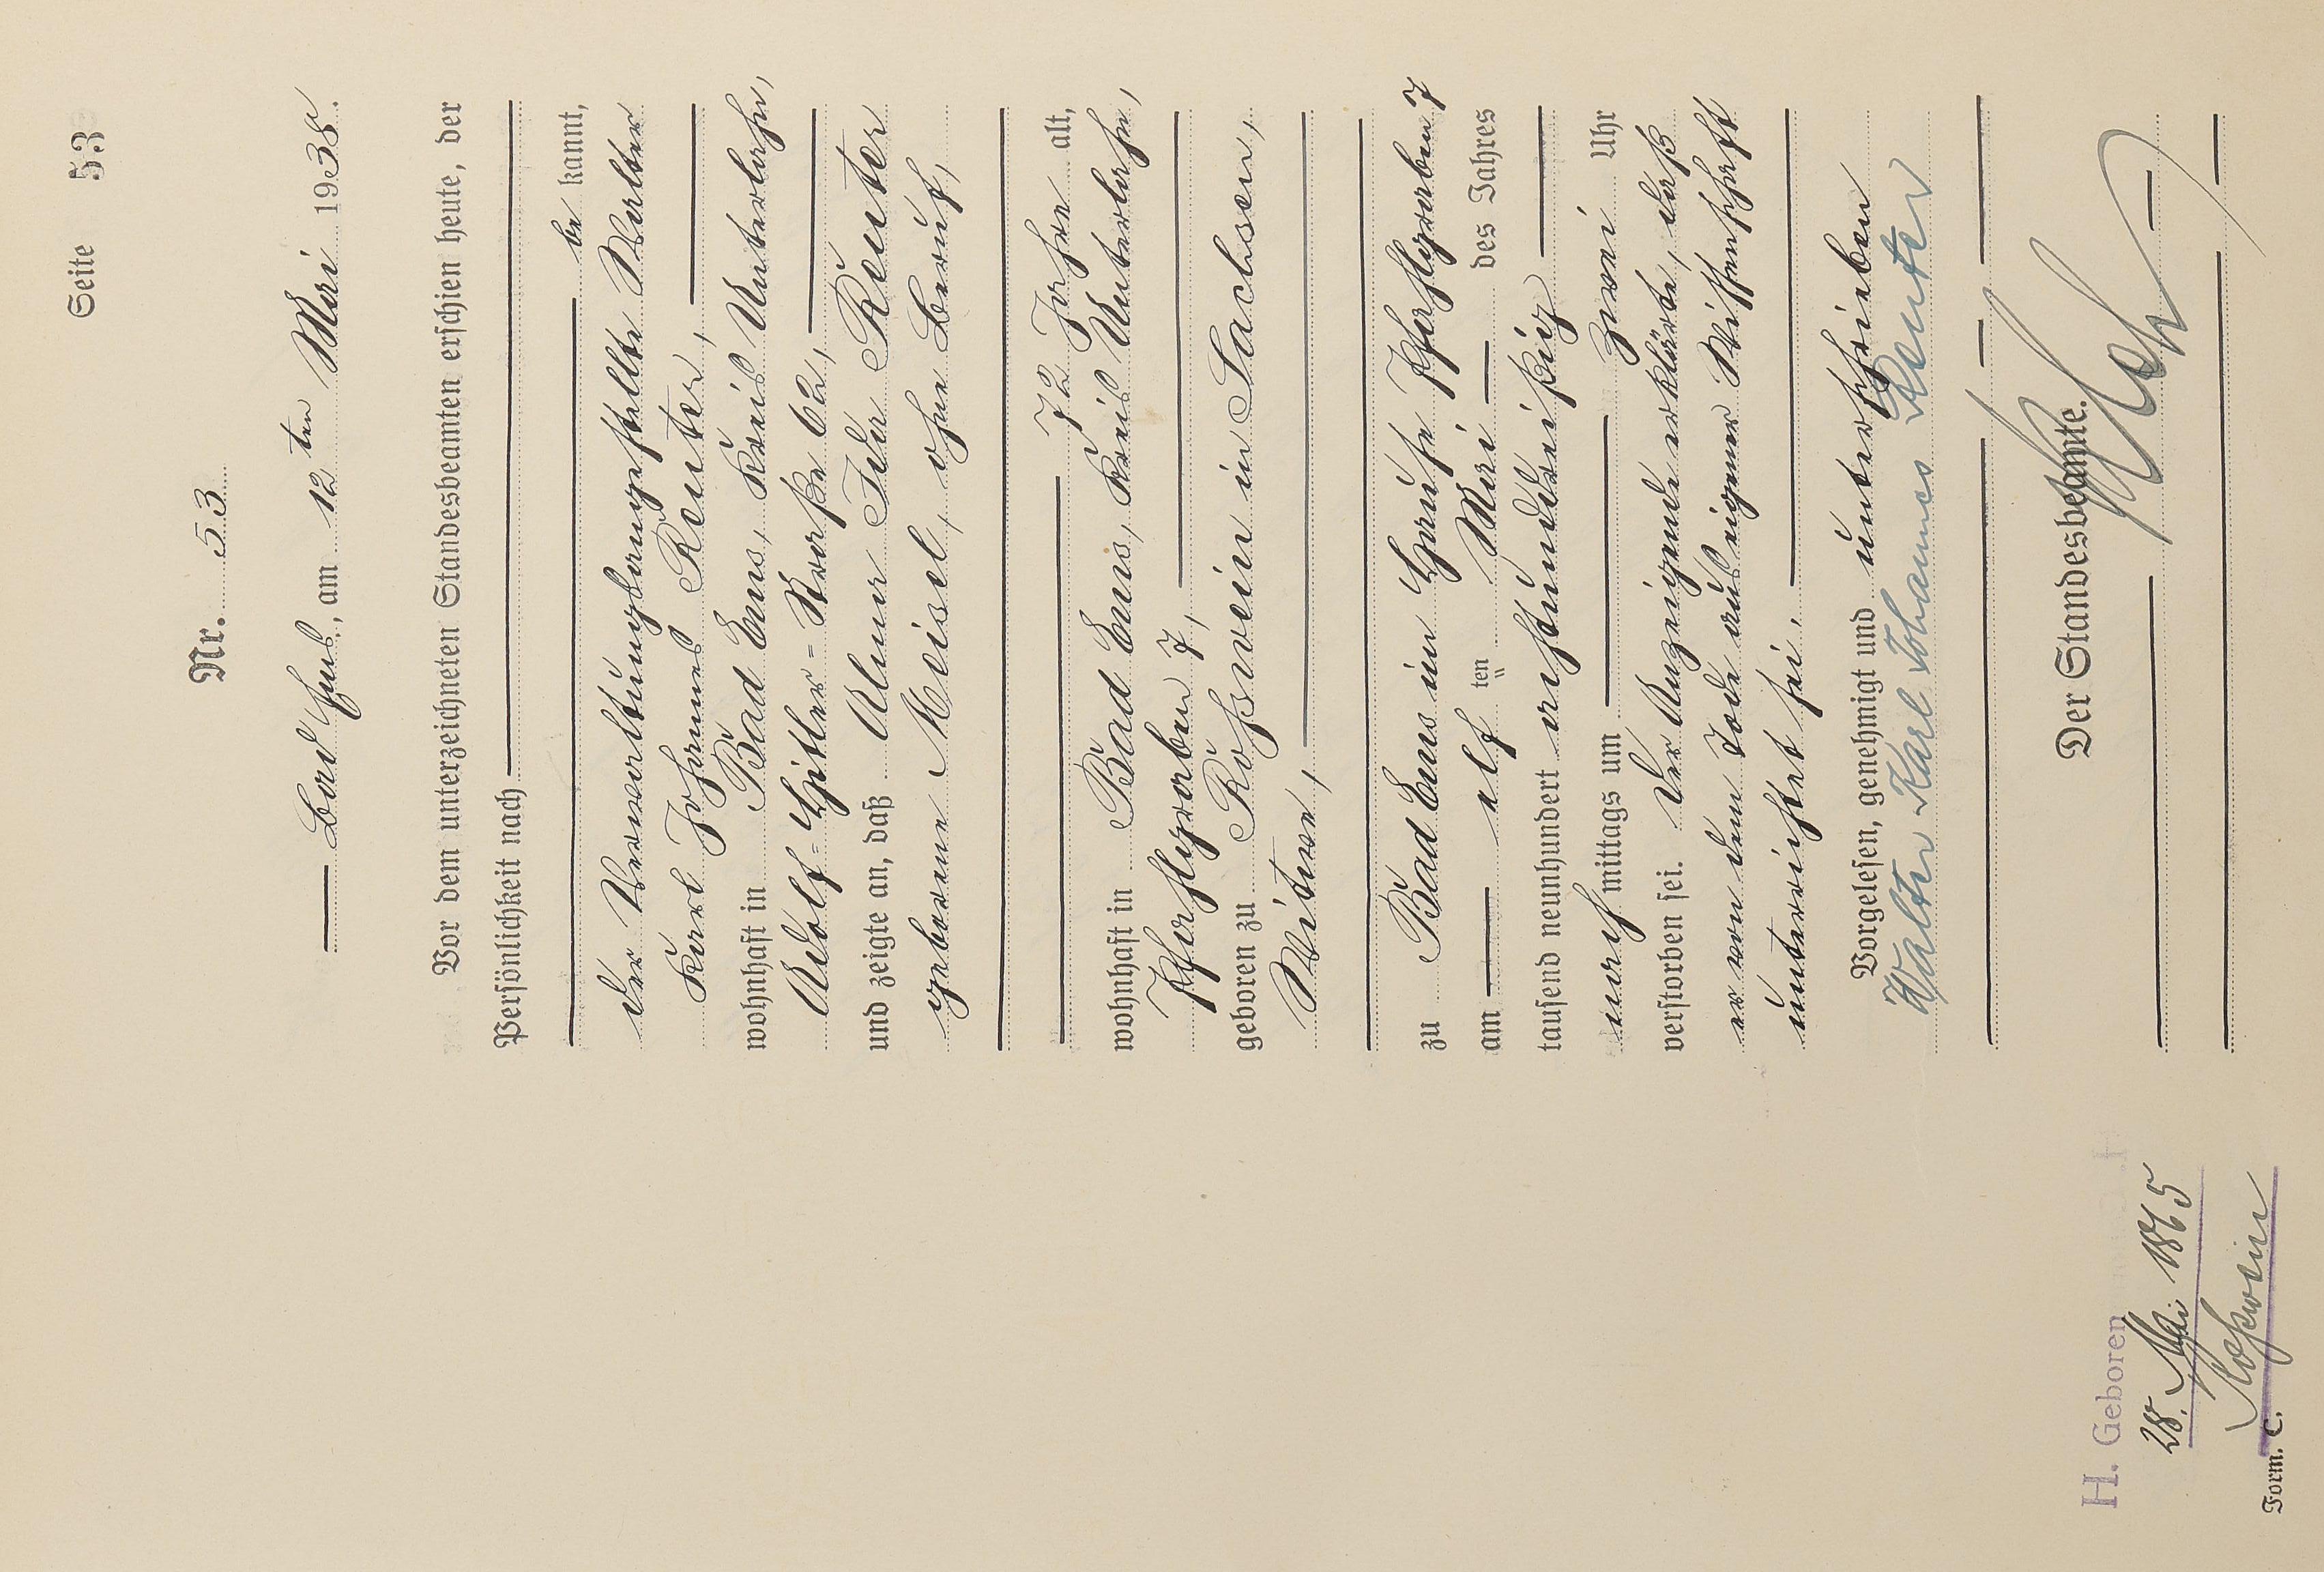 Seite 53
Nr. 53
Bad Ems, am 12ten Mai 1938.
Vor dem unterzeichneten Standesbeamten erschien heute, der
Persönlichkeit nach
be kannt,
der Verwaltungsangestellte Walter
Karl Johannes Reuter,
wohnhaft in Bad Ems, Kreis Unterlahn,
Adolf-Hitler-Straße 62,
und zeigte an, daß Alma Ida Reuter
geborene Meisel, ohne Beruf,
72 Jahre alt,
wohnhaft in Bad Ems, Kreis Unterlahn,
Pfahlgraben 7,
geboren zu Roßwein in Sachsen,
Witwe,
zu Bad Ems im Hause Pfahlgraben 7
am elf ten Mai des Jahres
tausend neunhundert achtunddreißig
nach mittags um zwei Uhr
verstorben sei. Der Anzeigende erklärte, daß
er von dem Tode aus eigener Wissenschaft
unterrichtet sei.
Vorgelesen, genehmigt und unterschrieben
Walter Karl Johannes Reuter
Der Standesbeamte.
H. Geboren
28. Mai 1865
Roßwein
Form. C.